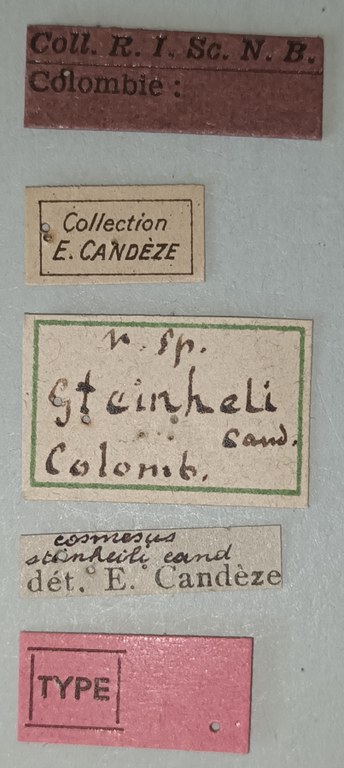 Coll. R. I. Sc. N. B.
Colombie :
Collection
E. CANDÈZE
n. sp.
Steinheli
Cand.
Colomb.
cosmesus
steinheili cand
dét. E. Candèze
TYPE